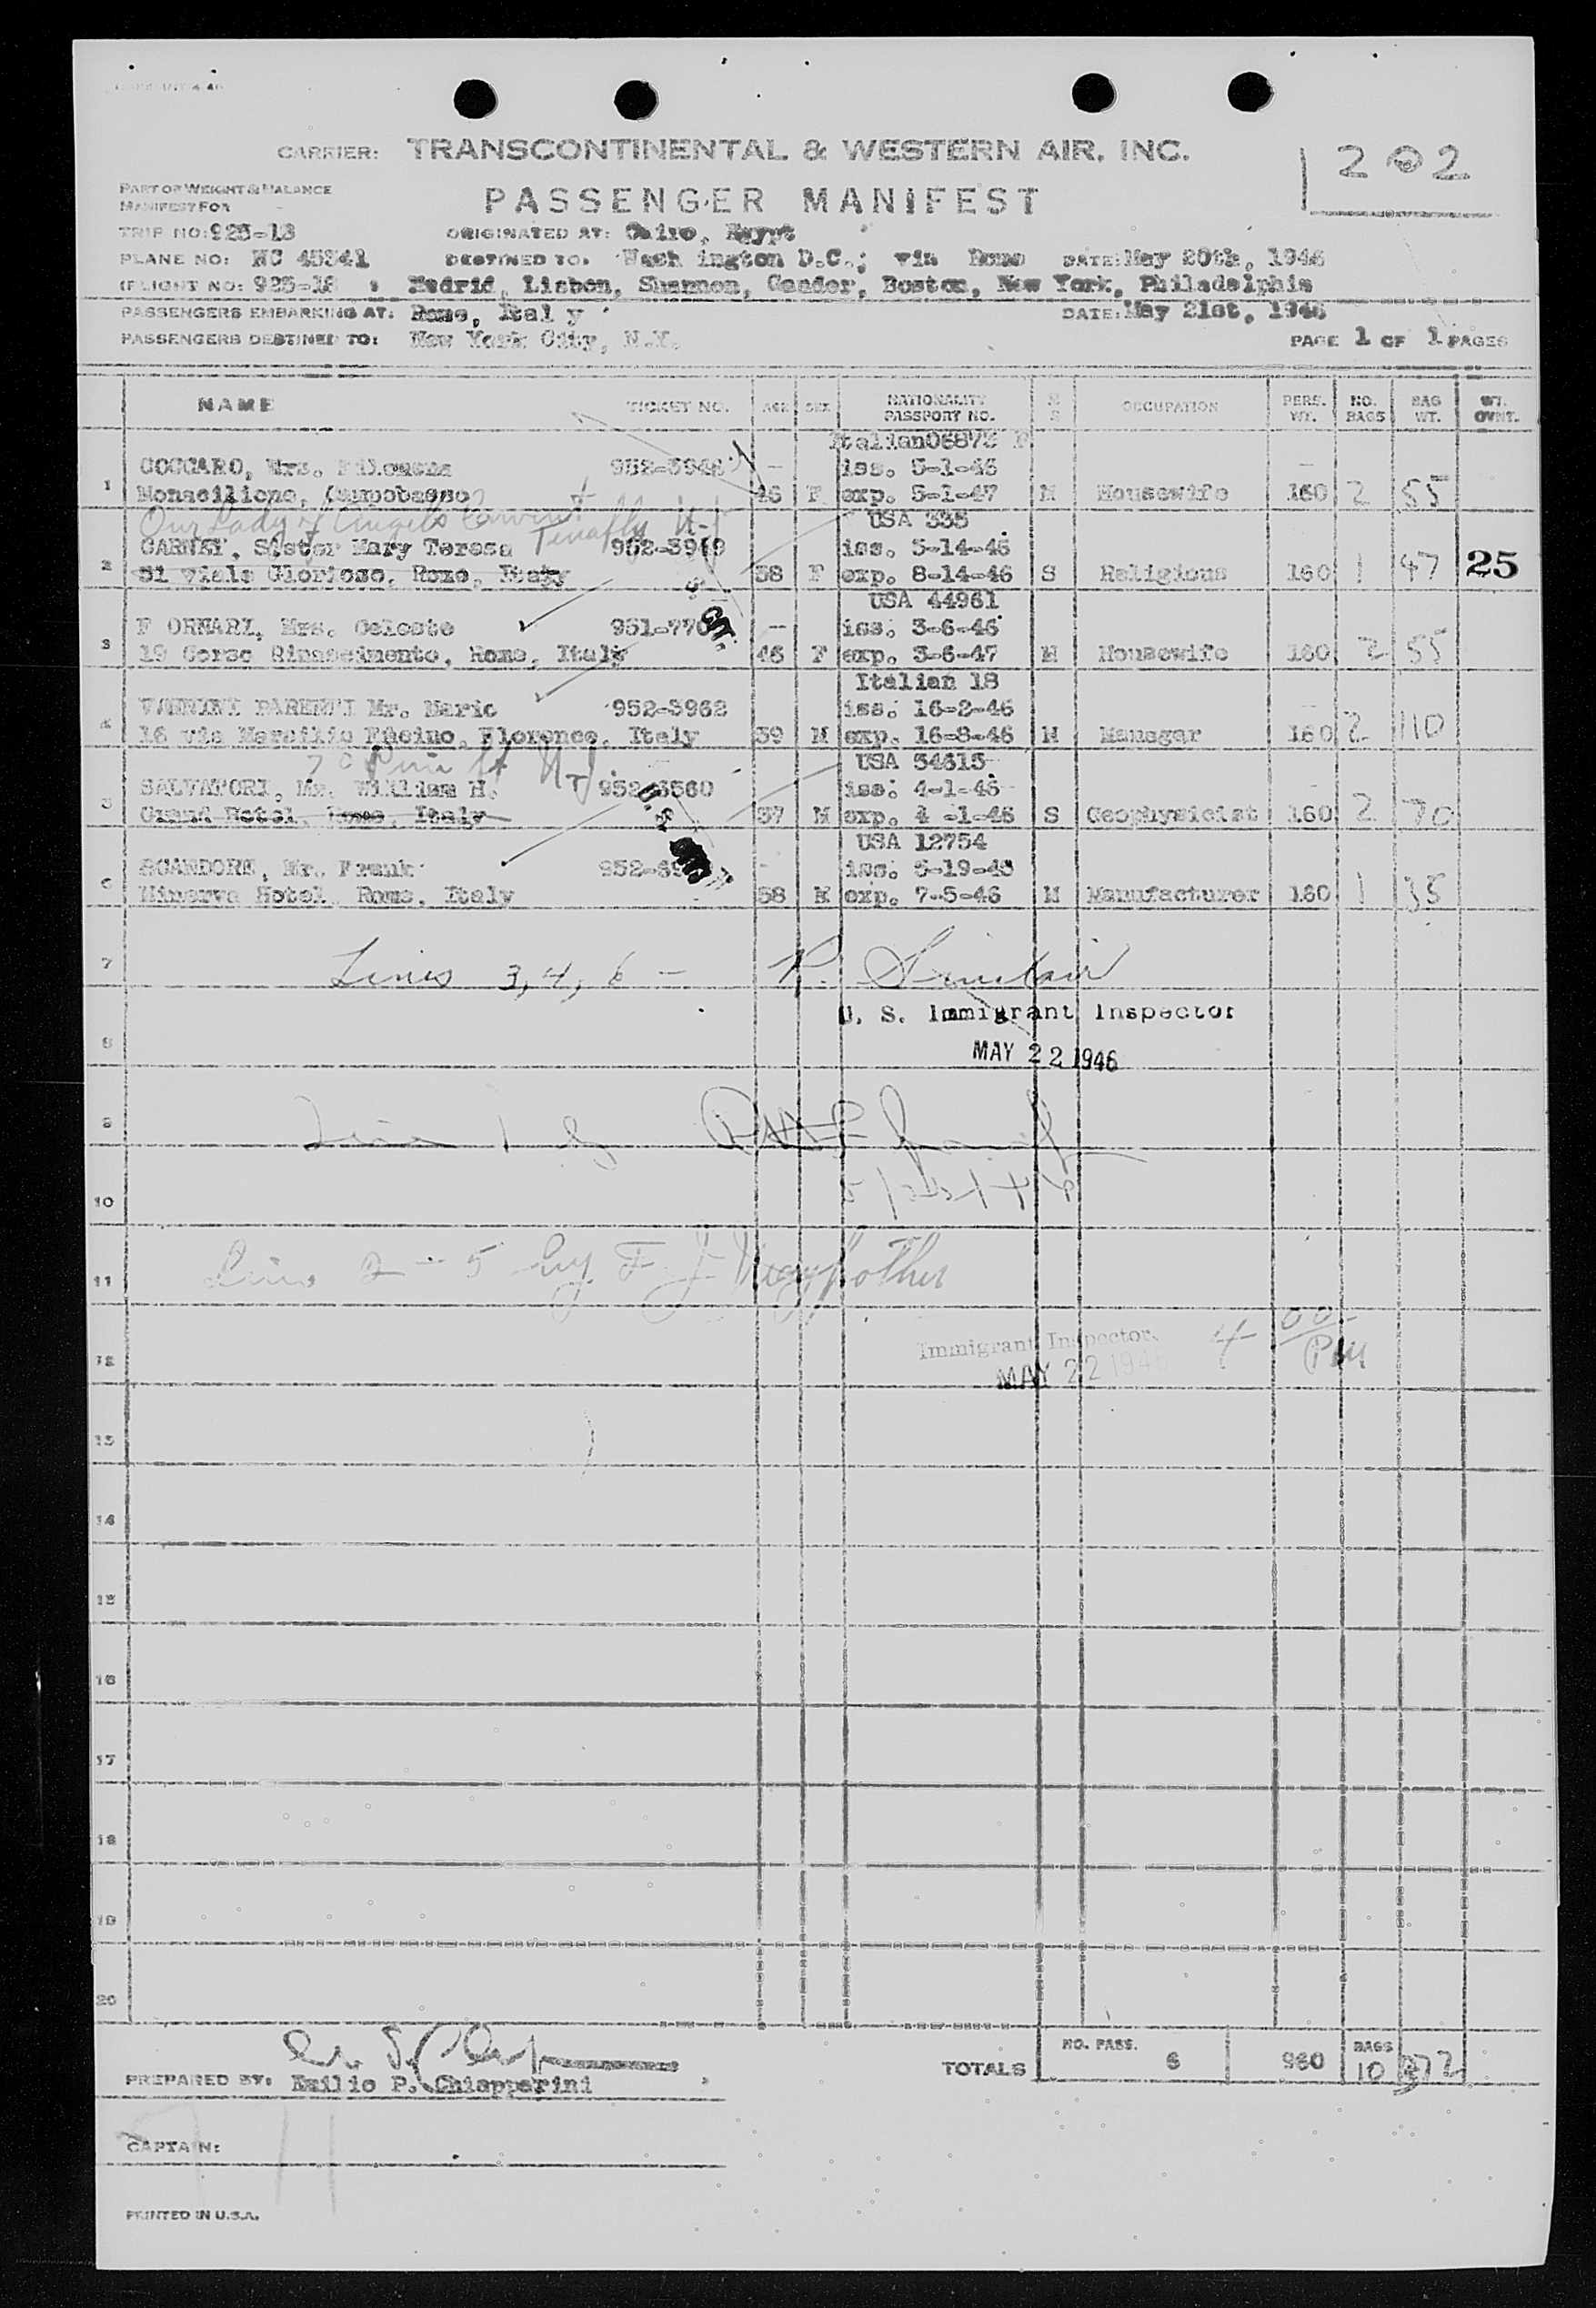 CARRIER: TRANSCONTINENTAL & WESTERN AIR, INC.
1202
PART OF WEIGHT & BALANCE
MANIFEST FOR
PASSENGER MANIFEST
TRIP NO: 925-18 ORIGINATED AT: Cairo, Egypt
PLANE NO: NC 45341 DESTINED TO: Wash ington D.C.; via Rome DATE: May 20th, 1946
(FLIGHT NO: 925-18 Madrid, Lisbon, Shannon, Gander, Boston, New York, Philadelphia
PASSENGERS EMBARKING AT: Rome, Ital y DATE: May 21st, 1946
PASSENGERS DESTINED TO: New York City, N.Y. PAGE 1 OF 1 PAGES
NAME TICKET NO. AGE SEX NATIONALITY PASSPORT NO. M S OCCUPATION PERS. WT. NO. BAGS BAG WT. WT. OVNT.
Italian06872 P
COCCARO, Mrs. Filomena 952-3948 iss. 5-1-46
1 Monacilione, Campobasso 46 F exp. 5-1-47 M Housewife 160 2 55
Our Lady of Angels Convent Tenafly N-J USA 335
CARNEY, Sister Mary Teresa 952-3949 iss. 5-14-46
2 31 viale Glorioso, Rome, Itaty 38 F exp. 8-14-46 S Religious 160 1 47 25
USA 44961
F ORNARI, Mrs. Celeste 951-770 iss. 3-6-46
3 19 Corso Rinascimento, Rome, Italy 46 F exp. 3-6-47 M Housewife 160 2 55
Italian 18
VANNINI PARENTI Mr. Mario 952-3962 iss. 16-2-46
4 16 via Marsilio Ficino, Florence, Italy 39 M exp. 16-8-46 M Manager 160 2 110
70 Pine St NJ USA 54615
SALVATORI, Mr. William H. 952-3560 iss. 4-1-46
5 Grand Hotel, Rome, Italy 37 M exp. 4 -1-46 S Geophysicist 160 2 70
U.S. cit.
USA 12754
SCANDORE, Mr. Frank iss. 5-19-45
6 Minerva Hotel, Rome, Italy 58 M exp. 7-5-46 M Manufacturer 160 1 35
7 Lines 3, 4, 6 - R. Sinclair
U. S. Immigrant Inspector
8 MAY 22 1946
9 Line 1
10
11 Lines 2 - 5 by F J
Immigrant Inspector. 4 00 PM
12 MAY 22 1946
13
14
15
16
17
18
19
20
TOTALS NO. PASS. 6 960 BAGS 10 372
PREPARED BY: Emilio P. Chiapperini
CAPTAIN:
PRINTED IN U.S.A.